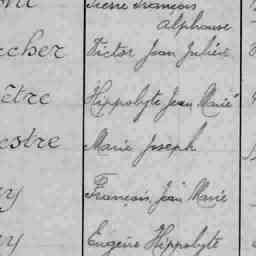 Pierre François
Alphonse
Victor Jean Julien
Hippolyte Jean Marie
Marie Joseph
François Jean Marie
Eugène Hippolyte